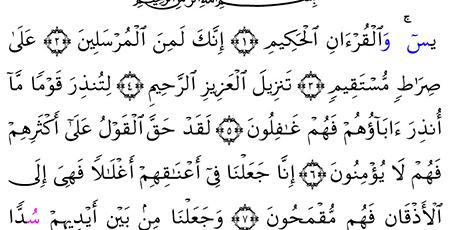 يسٓ ۚ وَٱلْقُرْءَانِ ٱلْحَكِيمِ ﴿١﴾ إِنَّكَ لَمِنَ ٱلْمُرْسَلِينَ ﴿٢﴾ عَلَىٰ
صِرَٰطٍ مُّسْتَقِيمٍ ﴿٣﴾ تَنزِيلَ ٱلْعَزِيزِ ٱلرَّحِيمِ ﴿٤﴾ لِتُنذِرَ قَوْمًا مَّآ
أُنذِرَ ءَابَآؤُهُمْ فَهُمْ غَٰفِلُونَ ﴿٥﴾ لَقَدْ حَقَّ ٱلْقَوْلُ عَلَىٰٓ أَكْثَرِهِمْ
فَهُمْ لَا يُؤْمِنُونَ ﴿٦﴾ إِنَّا جَعَلْنَا فِىٓ أَعْنَٰقِهِمْ أَغْلَٰلًا فَهِىَ إِلَى
ٱلْأَذْقَانِ فَهُم مُّقْمَحُونَ ﴿٧﴾ وَجَعَلْنَا مِنۢ بَيْنِ أَيْدِيهِمْ سَدًّا